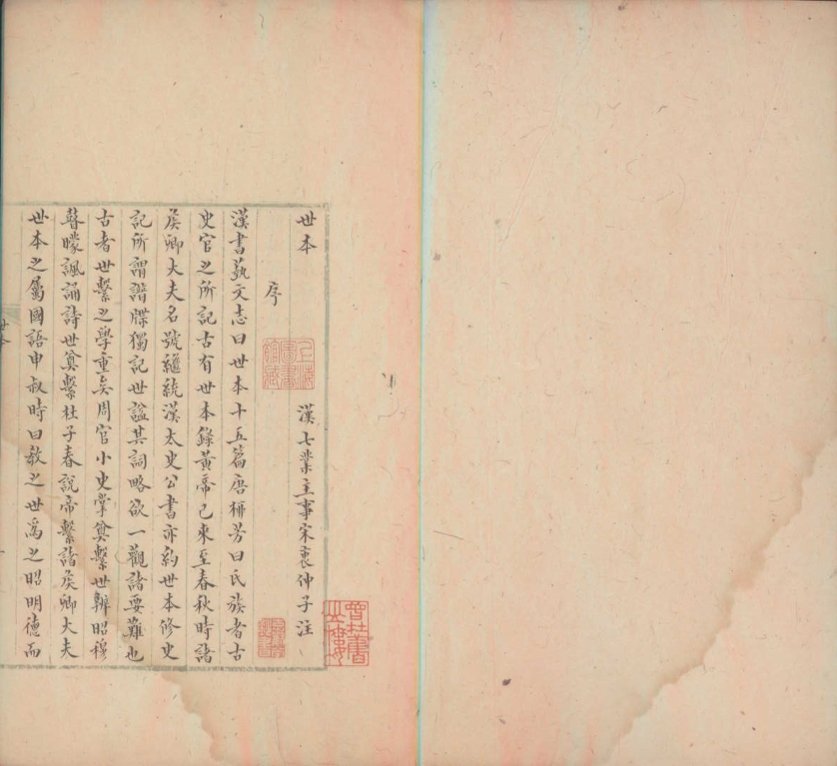 世本 漢七業主事宋衷仲子注
序
漢書藝文志曰世本十五篇唐栁芳曰氏族者古
史官之所記古有世本錄黃帝已來至春秋時諸
矦卿大夫名號繼統漢太史公書亦約世本修史
記所謂譜牒獨記世諡其詞略欲一觀諸要難也
古者世繫之學重矣周官小史掌奠繫世辨昭穆
瞽矇諷誦詩世奠繫杜子春說帝繫諸矦卿大夫
世本之屬國語申叔時曰教之世爲之昭明德而
世本